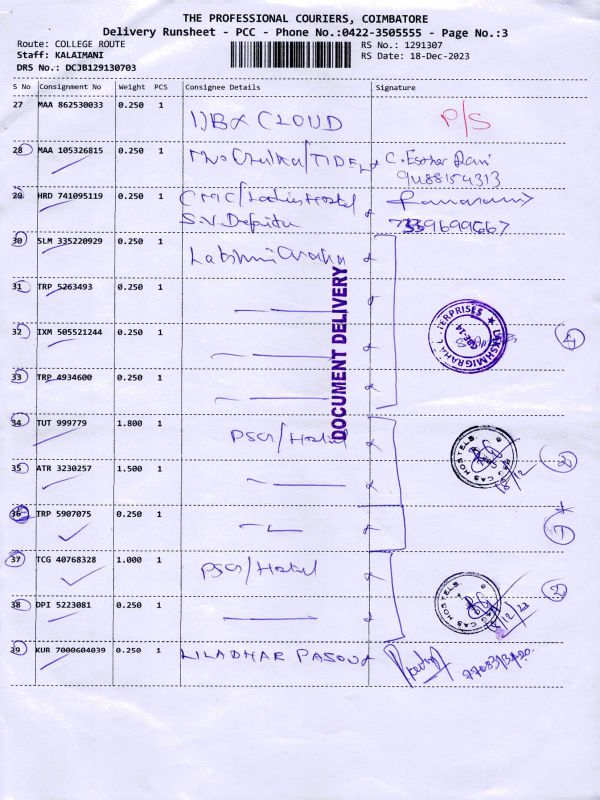 THE PROFESSIONAL COURIERS, COIMBATORE
Delivery Runsheet - PCC - Phone No.:0422-3505555 - Page No.:3
Route: COLLEGE ROUTE
RS No.: 1291307
Staff: KALAIMANI
RS Date: 18-Dec-2023
DRS No.: DCJB129130703
S No Consignment No Weight PCS Consignee Details Signature
27 MAA 862530033 0.250 1 CLOUD P/S
28 MAA 105326815 0.250 1 /TIDEL C. Esther Rani
9488154313
29 HRD 741095119 0.250 1 CMC/Ladies Hostel
S.V. 7339699667
30 SLM 335220929 0.250 1 Lakshmi Graha
31 TRP 5263493 0.250 1
32 IXM 505521244 0.250 1
33 TRP 4934600 0.250 1
DOCUMENT DELIVERY
LAKSHMIGRAHA ENTERPRISES
4
34 TUT 999779 1.800 1 PSG/Hostel
35 ATR 3230257 1.500 1
CAS HOSTELS
18/12
2
36 TRP 5907075 0.250 1
1
37 TCG 40768328 1.000 1 PSG/Hostel
38 DPI 5223081 0.250 1
CAS HOSTELS
18/12/23
2
39 KUR 7000604039 0.250 1 LILADHAR PASOU